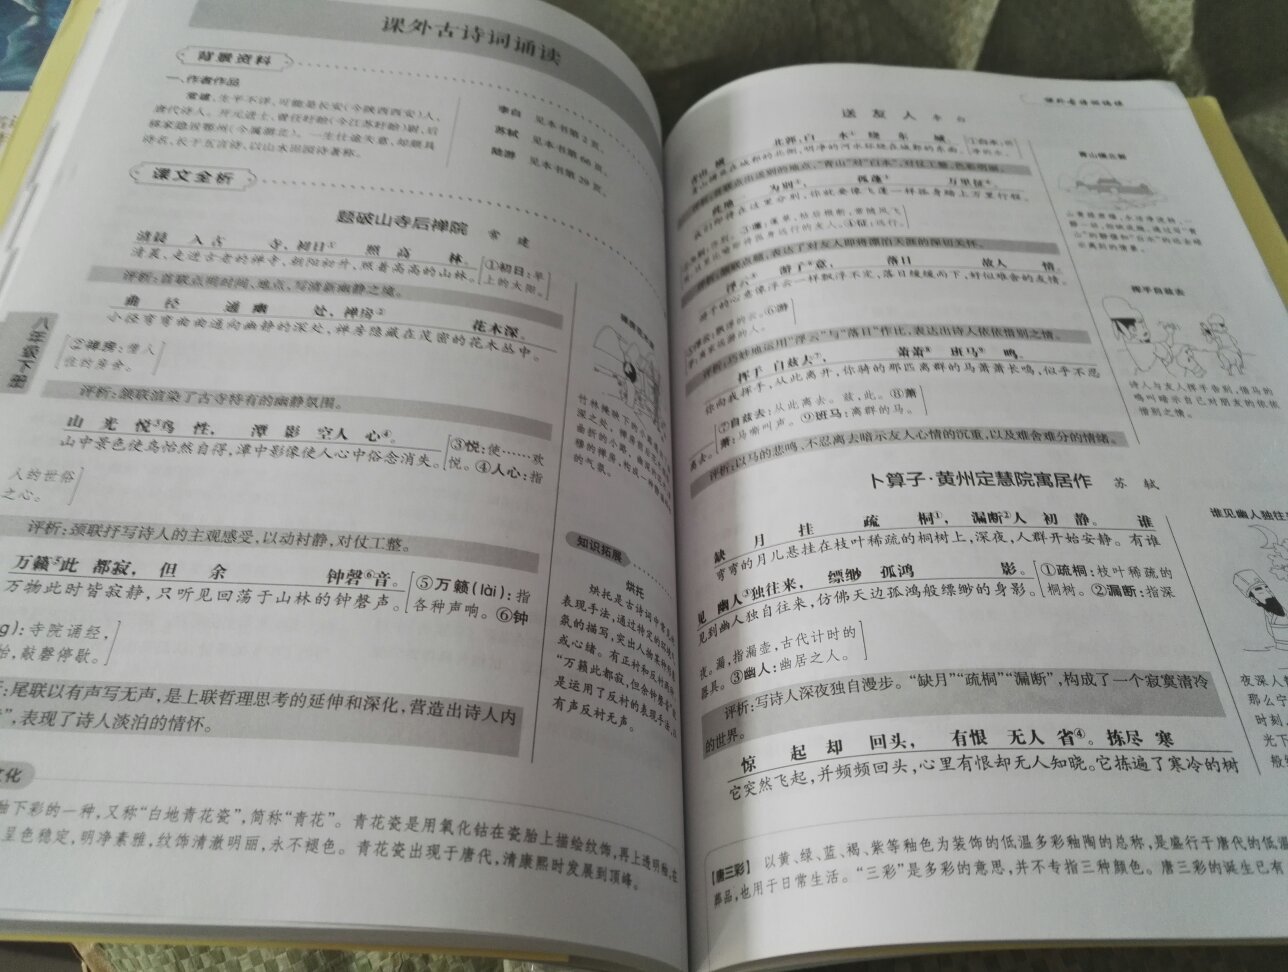 课外古诗词诵读
背景资料
一、作者作品
常建,生平不详,可能是长安(今陕西西安)人,
唐代诗人。开元进士,曾任盱眙(今江苏盱眙)尉,后
移家隐居鄂州(今属湖北)。一生仕途失意,却颇具
诗名,长于五言诗,以山水田园诗著称。
李白 见本书第2页。
苏轼 见本书第66页。
陆游 见本书第29页。
课文全析
题破山寺后禅院 常建
清晨 入古 寺,初日① 照 高 林。
清晨,走进古老的禅寺,朝阳初升,照着高高的山林。
①初日:早
上的太阳。
评析:首联点明时间、地点,写清新幽静之境。
曲 径 通 幽 处,禅房② 花木深。
小径弯弯曲曲通向幽静的深处,禅房隐藏在茂密的花木丛中。
②禅房:僧人
住的房舍。
评析:颔联渲染了古寺特有的幽静氛围。
山 光 悦③鸟 性, 潭 影 空人 心④。
山中景色使鸟怡然自得,潭中影像使人心中俗念消失。
③悦:使……欢
悦。④人心:指
人的世俗
之心。
评析:颈联抒写诗人的主观感受,以动衬静,对仗工整。
万籁⑤此 都寂, 但 余 钟磬⑥音。
万物此时皆寂静,只听见回荡于山林的钟磬声。
⑤万籁(lài):指
各种声响。⑥钟
g):寺院诵经,
始,敲磬停歇。
:尾联以有声写无声,是上联哲理思考的延伸和深化,营造出诗人内
”,表现了诗人淡泊的情怀。
竹林掩映下的小
深之处,禅房前后
曲折的小路、幽深
楼的禅房,构成一种
的气氛。
知识拓展
烘托
烘托是古诗词中常见
表现手法,通过特定的环境
氛的描写,突出人物某种
或心绪。有正衬和反衬两种
“万籁此都寂,但余钟磬音”
是运用了反衬的表现手法,以
有声反衬无声。
八年级下册
文化
釉下彩的一种,又称“白地青花瓷”,简称“青花”。青花瓷是用氧化钴在瓷胎上描绘纹饰,再上透明釉,在
呈色稳定,明净素雅,纹饰清澈明丽,永不褪色。青花瓷出现于唐代,清康熙时发展到顶峰。
课外古诗词诵读
送友人 李白
青山 横 北郭,白 水① 绕 东 城。
青山横亘在城郭的北侧,明净的河水环绕在城郭的东面。
①白水:明
净的水。
评析:首联点出送别的地点,“青山”对“白水”,对仗工整,色彩明丽。
此地 为别②, 孤蓬③ 万里征④。
我们即将在这里分别,你就要像飞蓬一样孤身踏上万里行程。
②为别:作别。③蓬:蓬草,枯后根断,常随风飞
旋,这里比喻即将孤身远行的友人。④征:远行。
评析:颔联点题,表达了对友人即将漂泊天涯的深切关怀。
浮云⑤ 游子⑥意, 落日 故人 情。
游子的心意像浮云一样飘浮不定,落日缓缓而下,好似难舍的友情。
⑤浮云:飘浮的云。⑥游
子:离家远游的人。
评析:巧妙地运用“浮云”与“落日”作比,表达出诗人依依惜别之情。
挥手 自兹去⑦, 萧萧⑧ 班马⑨ 鸣。
你向我挥手,从此离开,你骑的那匹离群的马萧萧长鸣,似乎不忍
离去。
⑦自兹去:从此离去。兹,此。⑧萧
萧:马嘶叫声。⑨班马:离群的马。
评析:以马的悲鸣、不忍离去暗示友人心情的沉重,以及难舍难分的情绪。
青山横北郭
挥手自兹去
诗人与友人挥手告别,借马的
鸣叫暗示自己对朋友的依依
惜别之情。
卜算子·黄州定慧院寓居作 苏轼
缺 月 挂 疏 桐①, 漏断②人 初 静。 谁
弯弯的月儿悬挂在枝叶稀疏的桐树上,深夜,人群开始安静。有谁
见 幽人③独往来, 缥缈 孤鸿 影。
见到幽人独自往来,仿佛天边孤鸿般缥缈的身影。
①疏桐:枝叶稀疏的
桐树。②漏断:指深
夜。漏,指漏壶,古代计时的
器具。③幽人:幽居之人。
评析:写诗人深夜独自漫步。“缺月”“疏桐”“漏断”,构成了一个寂寞清冷
的世界。
惊 起 却 回头, 有恨 无人 省④。拣尽 寒
它突然飞起,并频频回头,心里有恨却无人知晓。它拣遍了寒冷的树
谁见幽人独往
夜深人
那么宁
时刻,
光下
般
【唐三彩】 以黄、绿、蓝、褐、紫等釉色为装饰的低温多彩釉陶的总称,是盛行于唐代的低温
葬品,也用于日常生活。“三彩”是多彩的意思,并不专指三种颜色。唐三彩的诞生已有